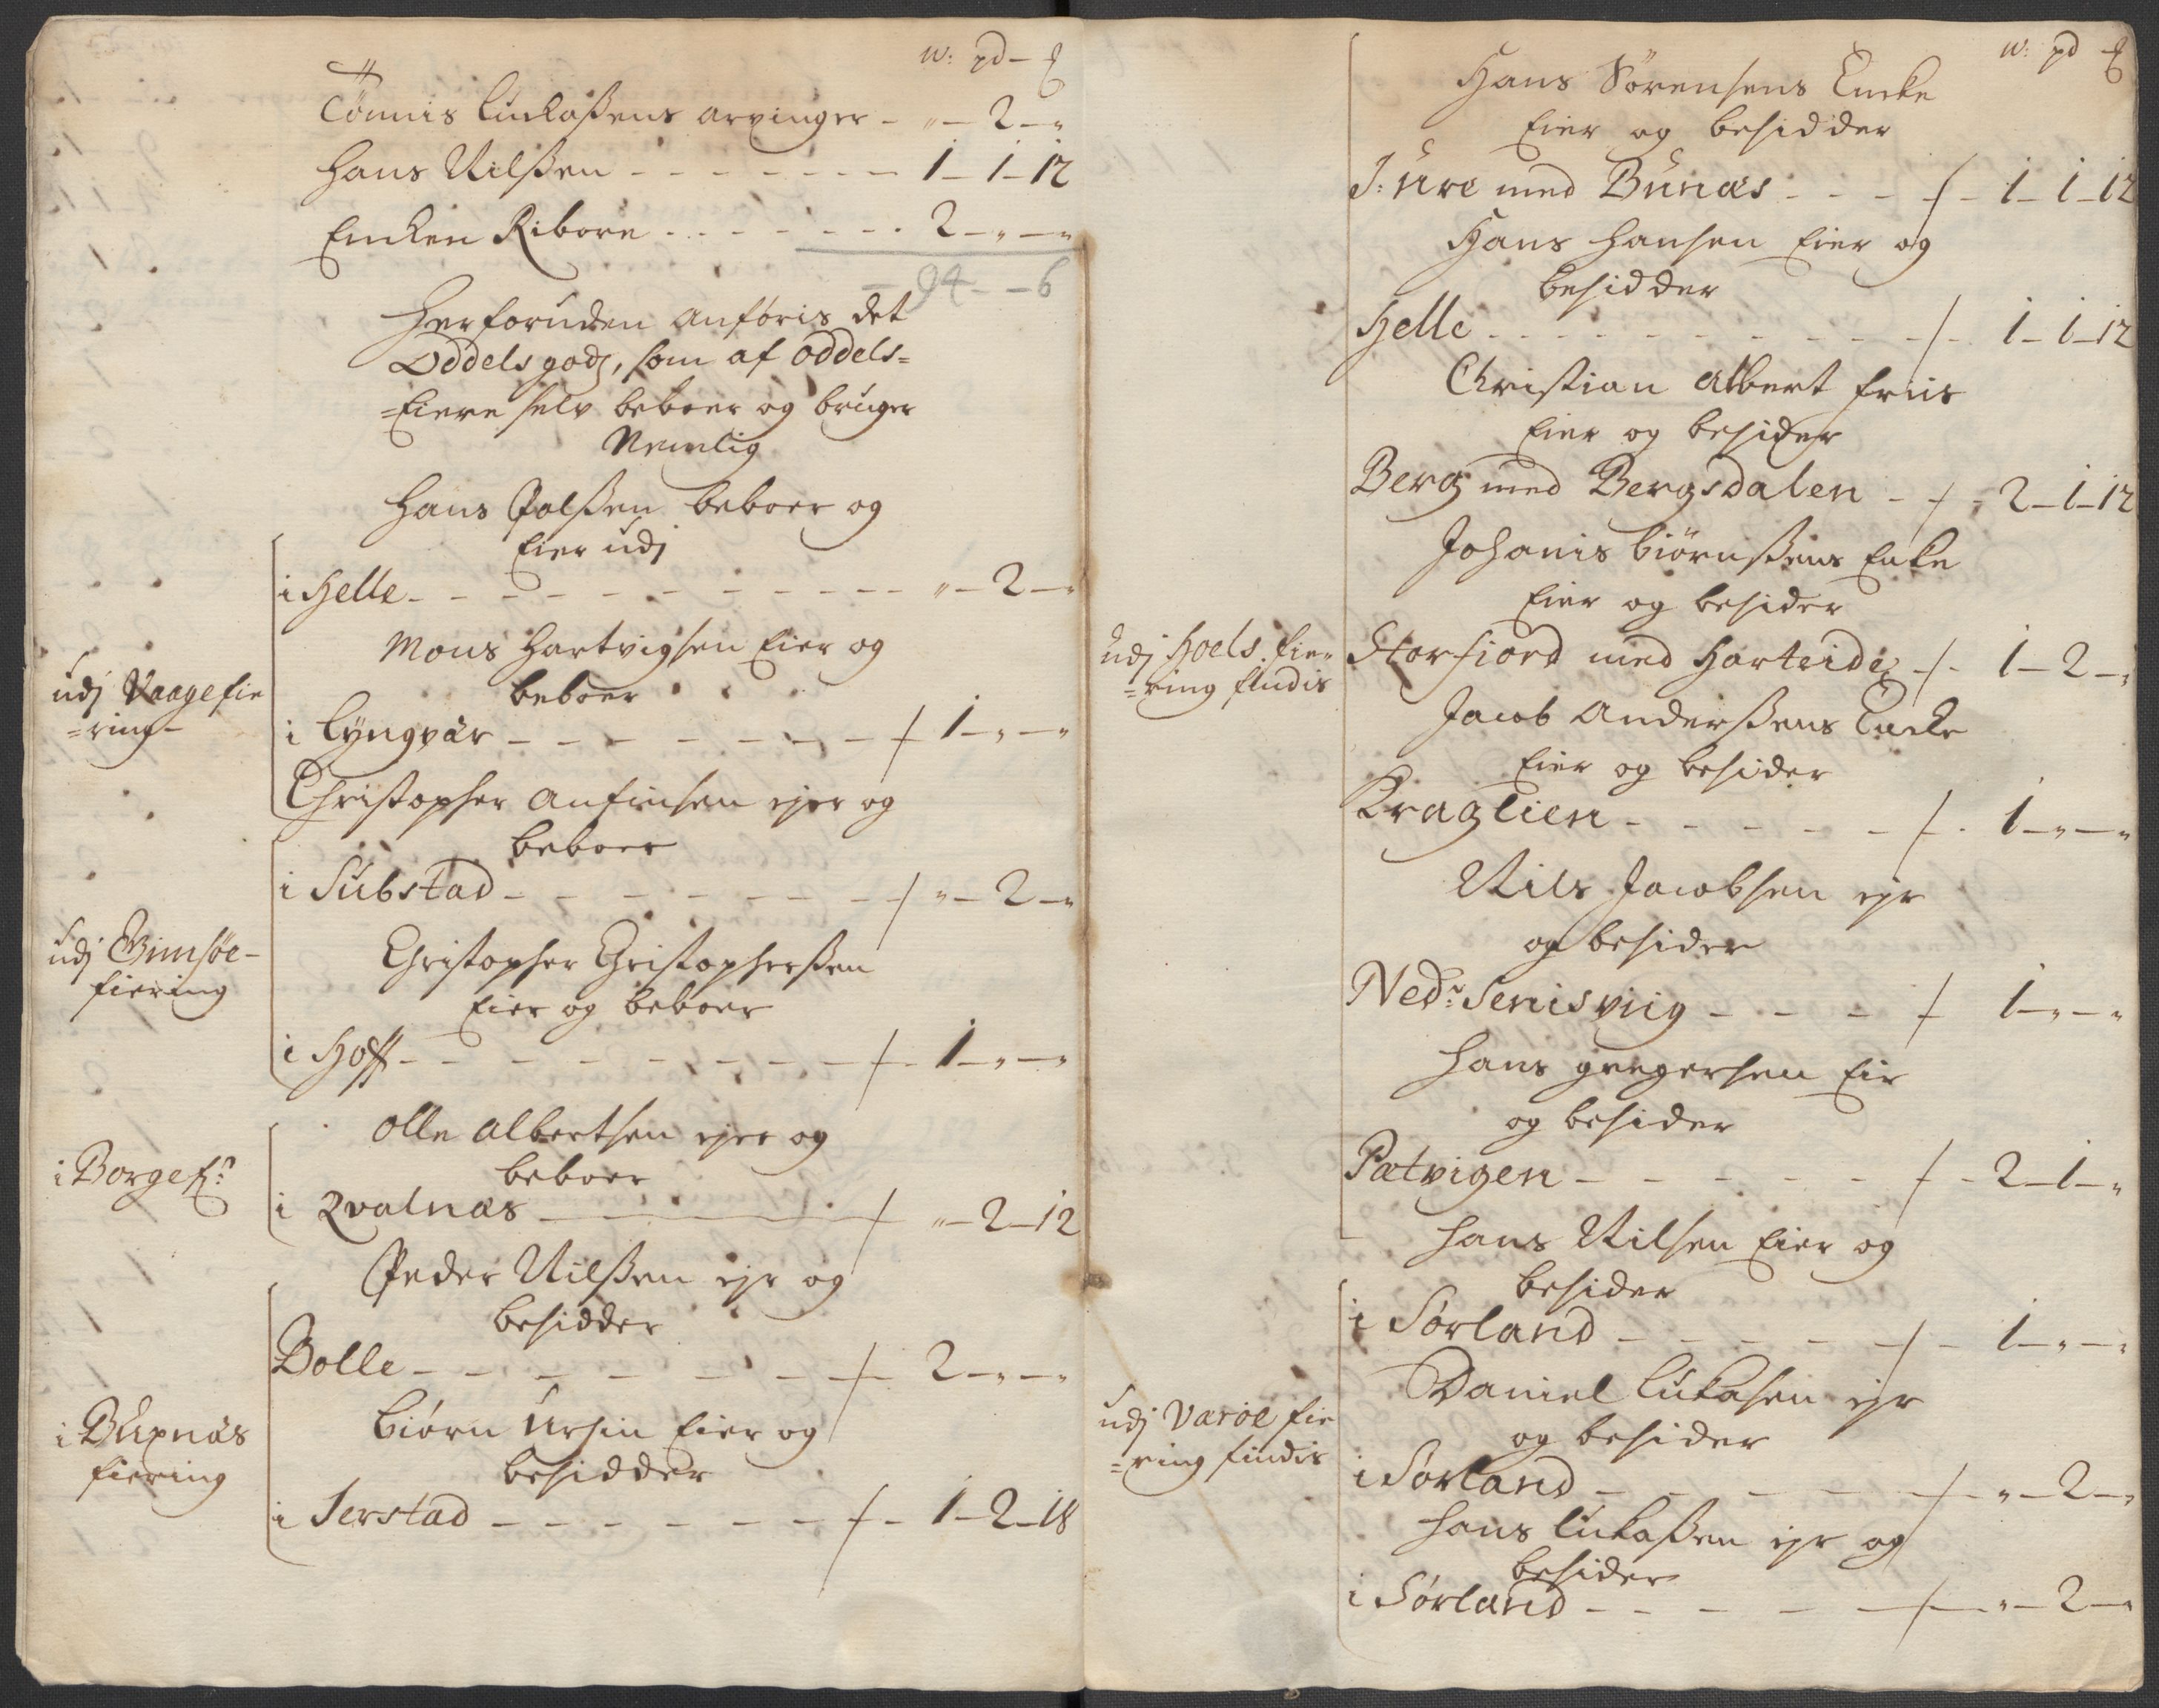 w: pd – ℔
Tönnis Luckaßens arvinger – „ – 2 – „
Hans Nilßen – – – – – – – 1 – 1 – 12
Encken Riborre . . – – – – . 2 – „ – „
94 – – 6
Herforuden anføris det
Oddels godz, som af oddels=
=Eierne selv beboer og bruger
Nemlig
Hans Polßen beboer og
Eier udj
i Helle – – – – – – – – – – „ – 2 – „
Mons Hartvigsen Eier og
beboer
udj Vaage fie
=ring –
i Lÿngvær – – – – – – – 1 – „ – „
Christopher Anfinsen ejer og
beboer
i Substad – – – – – – – „ – 2 – „
udj Gimsöe –
fiering
Christopher Christopherßen
Eier og beboer
i Hoff – – – – – – – – – 1 – „ – „
Olle Albertsen ejer og
beboer
i Borge f:
i Qvalnæs – – – – „ – 2 – 12
Peder Nilßen ejr og
besidder
Bolle – – – – – – – – 2 – „ – „
i Buxnæs
fiering
Biørn Ursin Eier og
besidder
i Jerstad – – – – – – – 1 – 2 – 18
w: pd ℔
Hans Sörensens Encke
Eier og besidder
J: Ure med Bunæs – – – – 1 – 1 – 12
Hans Hansen Eier og
besidder
Helle – – – – – – – – – 1 – 1 – 12
Christian Albert friis
Eier og besider
Berg med Bergsdalen – – 2 – 1 – 12
Johanis Biörnßens Enke
Eier og besider
udj Hoels fie=
=ring findis
Storfiord med Harteide – 1 – 2 – „
Jacob Anderßens Encke
Eier og besider
Kraglien – – – – – – . 1 – „ – „
Nils Jacobsen ejr
og besider
Nedr: Senisviig – – – – 1 – „ – „
Hans gregersen Eir
og besider
Pætvigen – – – – – – – 2 – 1 – „
Hans Nilsen Eier og
besider
i Sorland – – – – – – – 1 – „ – „
udj Varöe fie
=ring findis
Daniel Lukasen ejr
og besider
i Sorland – – – – – – „ – 2 – „
Hans Lukaßen ejr og
besider
i Sørland – – – – – – „ – 2 – „